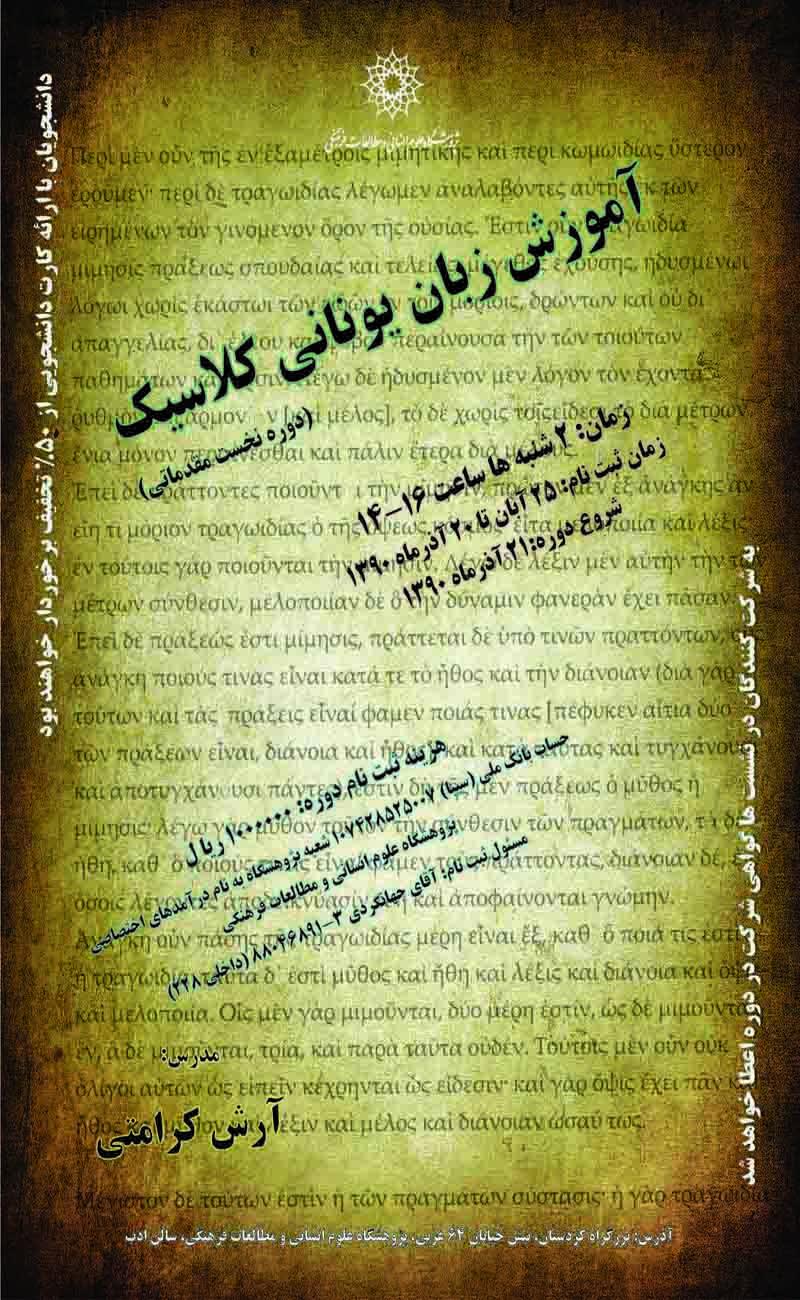 پژوهشگاه علوم انسانی و مطالعات فرهنگی
آموزش زبان یونانی کلاسیک
(دوره نخست مقدماتی)
زمان: ۲ شنبه ها ساعت ۱۶-۱۴
زمان ثبت نام: ۲۵ آبان تا ۲۰ آذر ماه ۱۳۹۰
شروع دوره: ۲۱ آذر ماه ۱۳۹۰
هزینه ثبت نام دوره: ۱۰۰۰۰۰۰ ریال
حساب بانک ملی (سیبا) شعبه پژوهشگاه به نام درآمدهای اختصاصی
پژوهشگاه علوم انسانی و مطالعات فرهنگی
مسئول ثبت نام: آقای جهانگردی ۳-۸۸۰۴۶۸۹۱ (داخلی ۲۲۸)
مدرس:
آرش کرامتی
دانشجویان با ارائه کارت دانشجویی از ۵۰٪ تخفیف برخوردار خواهند بود
به شرکت کنندگان در نشست ها گواهی شرکت در دوره اعطا خواهد شد
آدرس: بزرگراه کردستان، نبش خیابان ۶۴ غربی، پژوهشگاه علوم انسانی و مطالعات فرهنگی، سالن ادب
Περὶ μὲν οὖν τῆς ἐν ἑξαμέτροις μιμητικῆς καὶ περὶ κωμῳδίας ὕστερον
ἐροῦμεν· περὶ δὲ τραγῳδίας λέγωμεν ἀναλαβόντες αὐτῆς τῶν
εἰρημένων τὸν γινόμενον ὅρον τῆς οὐσίας. Ἔστιν
μίμησις πράξεως σπουδαίας καὶ ἐχούσης, ἡδυσμένῳ
λόγῳ χωρὶς ἑκάστῳ τῶν μορίοις, δρώντων καὶ οὐ δι
ἀπαγγελίας, περαίνουσα τὴν τῶν τοιούτων
παθημάτων δὲ ἡδυσμένον μὲν λόγον τὸν ἔχοντα
μέλος], τὸ δὲ χωρὶς τοῖς εἴδεσι τὸ διὰ μέτρων
ἔνια μόνον καὶ πάλιν ἕτερα διὰ
Ἐπεὶ δὲ πράττοντες ἐξ ἀνάγκης ἂν
εἴη τι μόριον τραγῳδίας ὁ τῆς ὄψεως καὶ λέξις
ἐν τούτοις γὰρ ποιοῦνται τὴν δὲ λέξιν μὲν αὐτὴν τὴν
μέτρων σύνθεσιν, μελοποιίαν δὲ ὃ τὴν δύναμιν φανερὰν ἔχει πᾶσαν.
Ἐπεὶ δὲ πράξεώς ἐστι μίμησις, πράττεται δὲ ὑπὸ τινῶν πραττόντων,
ἀνάγκη ποιούς τινας εἶναι κατά τε τὸ ἦθος καὶ τὴν διάνοιαν (διὰ γὰρ
τούτων καὶ τὰς πράξεις εἶναί φαμεν ποιάς τινας [πέφυκεν αἴτια δύο
τῶν πράξεων εἶναι, διάνοια καὶ καὶ τυγχάνουσι
καὶ πάντες πράξεως ὁ μῦθος ἡ
μίμησις· λέγω γὰρ μῦθον τοῦτον τὴν σύνθεσιν τῶν πραγμάτων,
ἤθη, καθ πράττοντας, διάνοιαν δέ,
ὅσοις καὶ ἀποφαίνονται γνώμην.
οὖν πάσης τραγῳδίας μέρη εἶναι ἕξ, καθ ὃ ποιά τις ἐστὶ
ἡ ταῦτα δ ἐστὶ μῦθος καὶ ἤθη καὶ λέξις καὶ διάνοια καὶ
καὶ μελοποιία. Οἷς μὲν γὰρ μιμοῦνται, δύο μέρη ἐστίν, ὡς δὲ μιμοῦνται
ἕν, ἃ δὲ τρία, καὶ παρὰ ταῦτα οὐδέν. Τούτοις μὲν οὖν οὐκ
ὀλίγοι αὐτῶν ὡς εἰπεῖν κέχρηνται ὡς εἴδεσιν· καὶ γὰρ ὄψις ἔχει πᾶν
καὶ μέλος καὶ διάνοιαν ὡσαύτως.
Μέγιστον δὲ τούτων ἐστὶν ἡ τῶν πραγμάτων σύστασις· ἡ γὰρ τραγῳδία